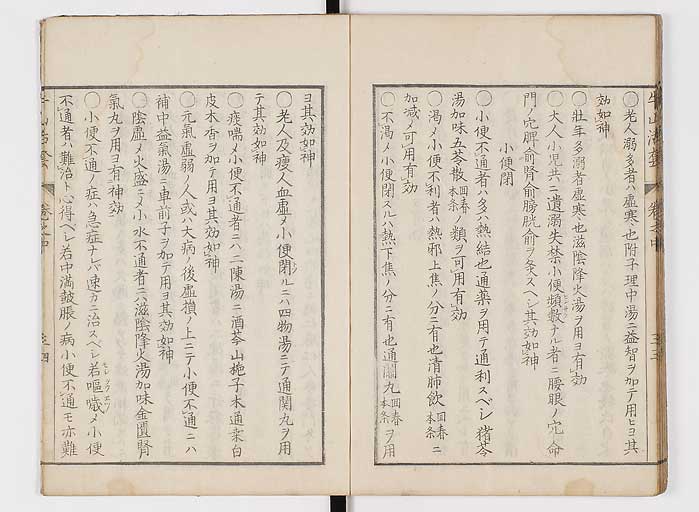 牛山活套 卷之中 三三
〇老人溺多者ハ虚寒也附子理中湯ニ益智ヲ加テ用ヒヨ其
効如神
〇壯年多溺者虚寒也滋陰降火湯ヲ用ヨ有効
〇大人小児共ニ遺溺失禁小便頻數ナル者ニ腰眼ノ穴命
門ノ穴脾俞腎俞膀胱俞ヲ灸スベシ其効如神
小便閉
〇小便不通者ハ多ハ熱結也通薬ヲ用テ通利スベシ猪苓
湯加味五苓散回春本条ノ類ヲ可用有効
〇渇メ小便不利者ハ熱邪上焦ノ分ニ有也清肺飲回春本条ニ
加減メ可用有効
〇不渇メ小便閉スルハ熱下焦ノ分ニ有也通關丸回春本条ヲ用
ヨ其効如神
〇老人及瘦人血虚メ小便閉ルニハ四物湯ニテ通関丸ヲ用
テ其効如神
〇痰喘メ小便不通者ニハ二陳湯ニ酒芩山梔子木通桑白
皮木香ヲ加テ用ヨ其効如神
〇元氣虚弱ノ人或ハ大病ノ後虚損ノ上ニテ小便不通ニハ
補中益氣湯ニ車前子ヲ加テ用ヨ其効如神
〇陰虚メ火盛ニメ小水不通者ニ六滋陰降火湯加味金匱腎
氣丸ヲ用ヨ有神効
〇小便不通ノ症ハ急症ナレバ速カニ治スベシ若嘔噦メ小便
不通者ハ難治ト心得ベシ若中満皷脹ノ病小便不通モ亦難
卷之中 三四